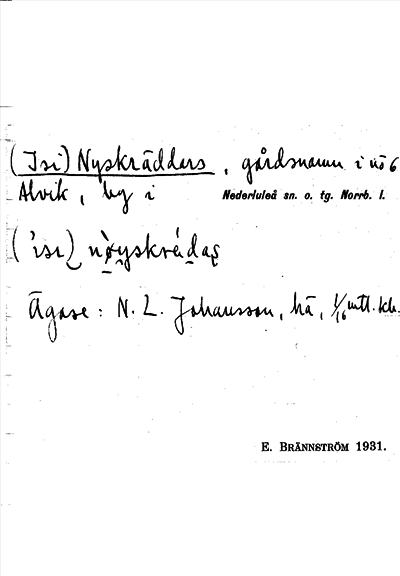 (Isi) Nyskrädders, gårdsnamn i nö 6
Alvik, by i Nederluleå sn. o. tg. Norrb. l.
('isi) nøyskréidas
Ägare: N. L. Johansson, hä, 1/16 mtl. kb.
E. BRÄNNSTRÖM 1931.